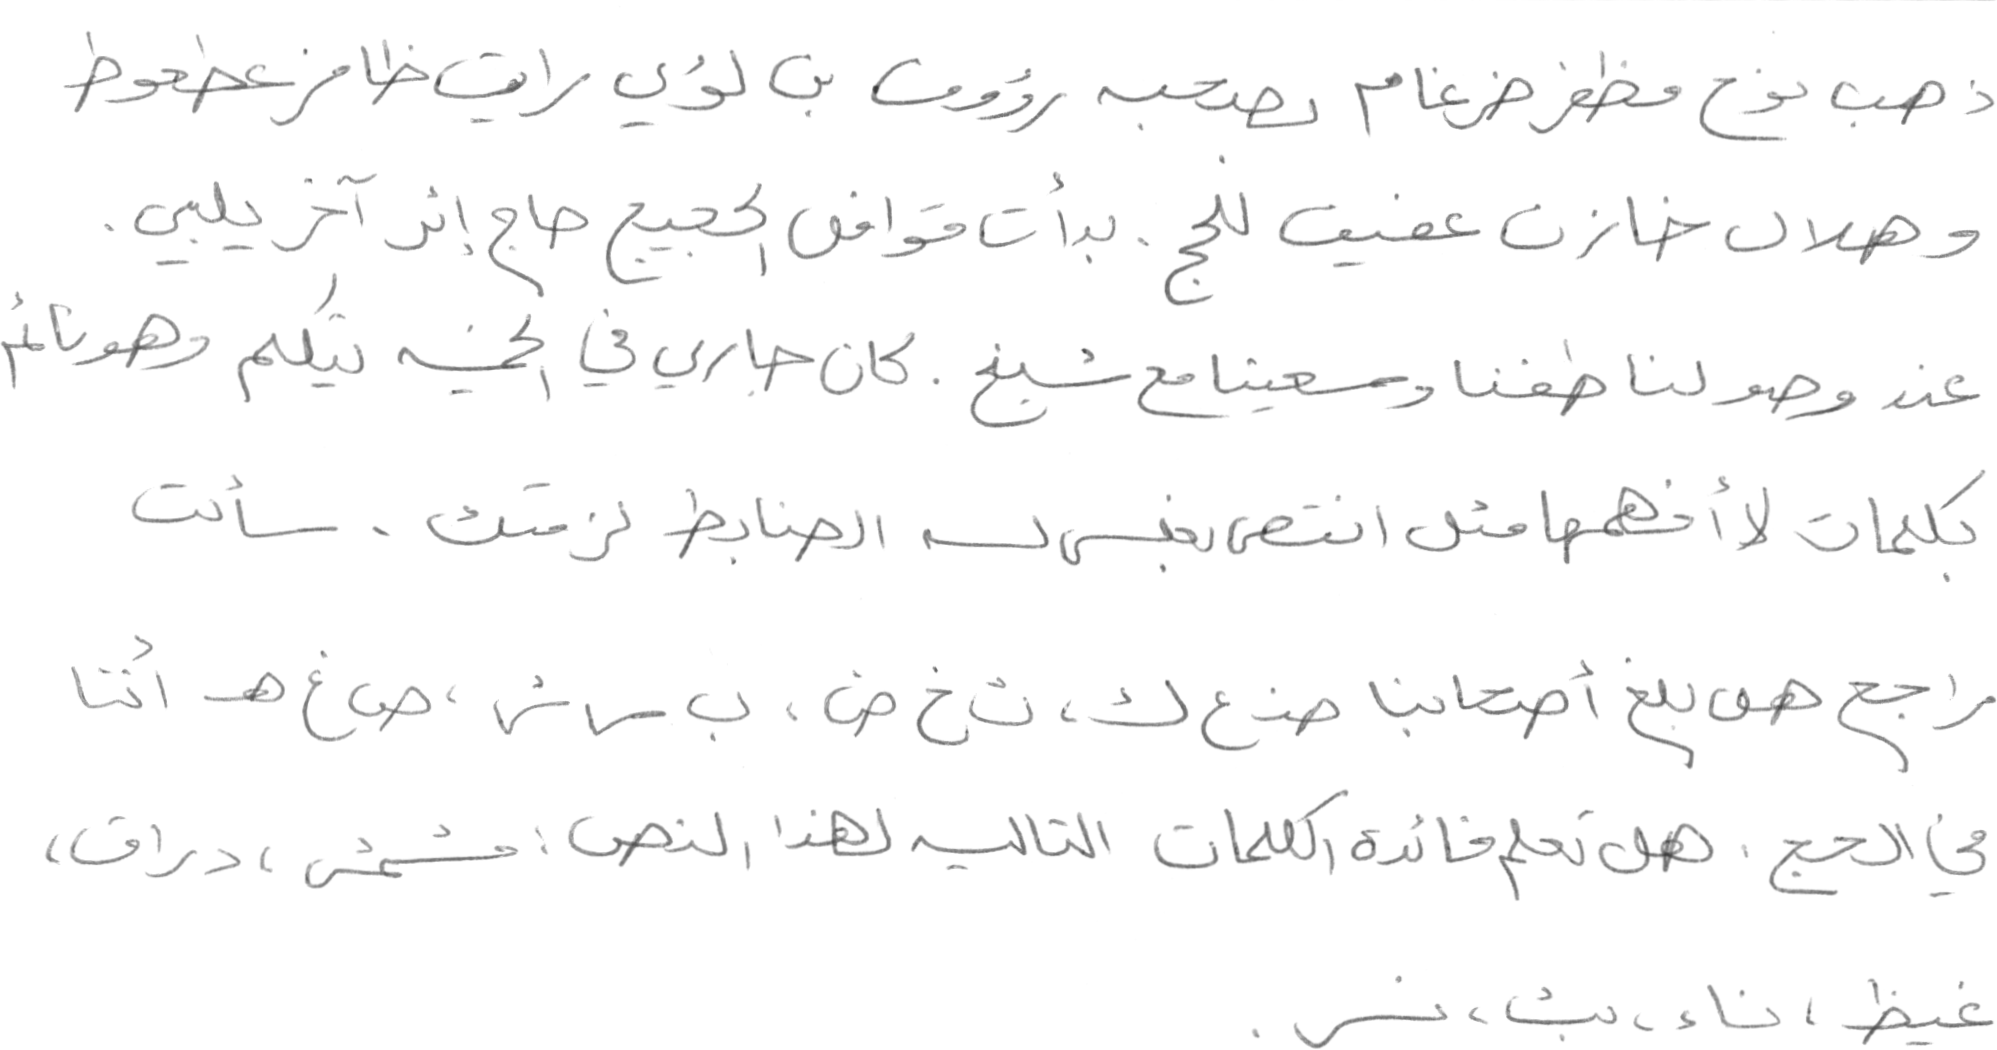 ذهب نوح مظفر ضرغام بصحبه رؤوف بن لؤي رايق ظافر عطعوط
وهلال خازن عفيف للحج . بدأت قوافل الحجيج حاج إثر آخر يلبي .
عند وصولنا طفنا وسعينا مع شيخ . كان جاري في الخيمه يتكلم وهو نائم
بكلمات لا أفهمها مثل انتص بغبس لسه الضابط لزمتك . سألت
راجع هل بلغ أصحابنا ضذع ك، ث خ ض ، ب س ش ، ص غ هـ اثنا
في الحج . هل تعلم فائدة الكلمات التاليه لهذا النص : مشمش ، دراق ،
غيظ ، ناء ، بث ، نسر .